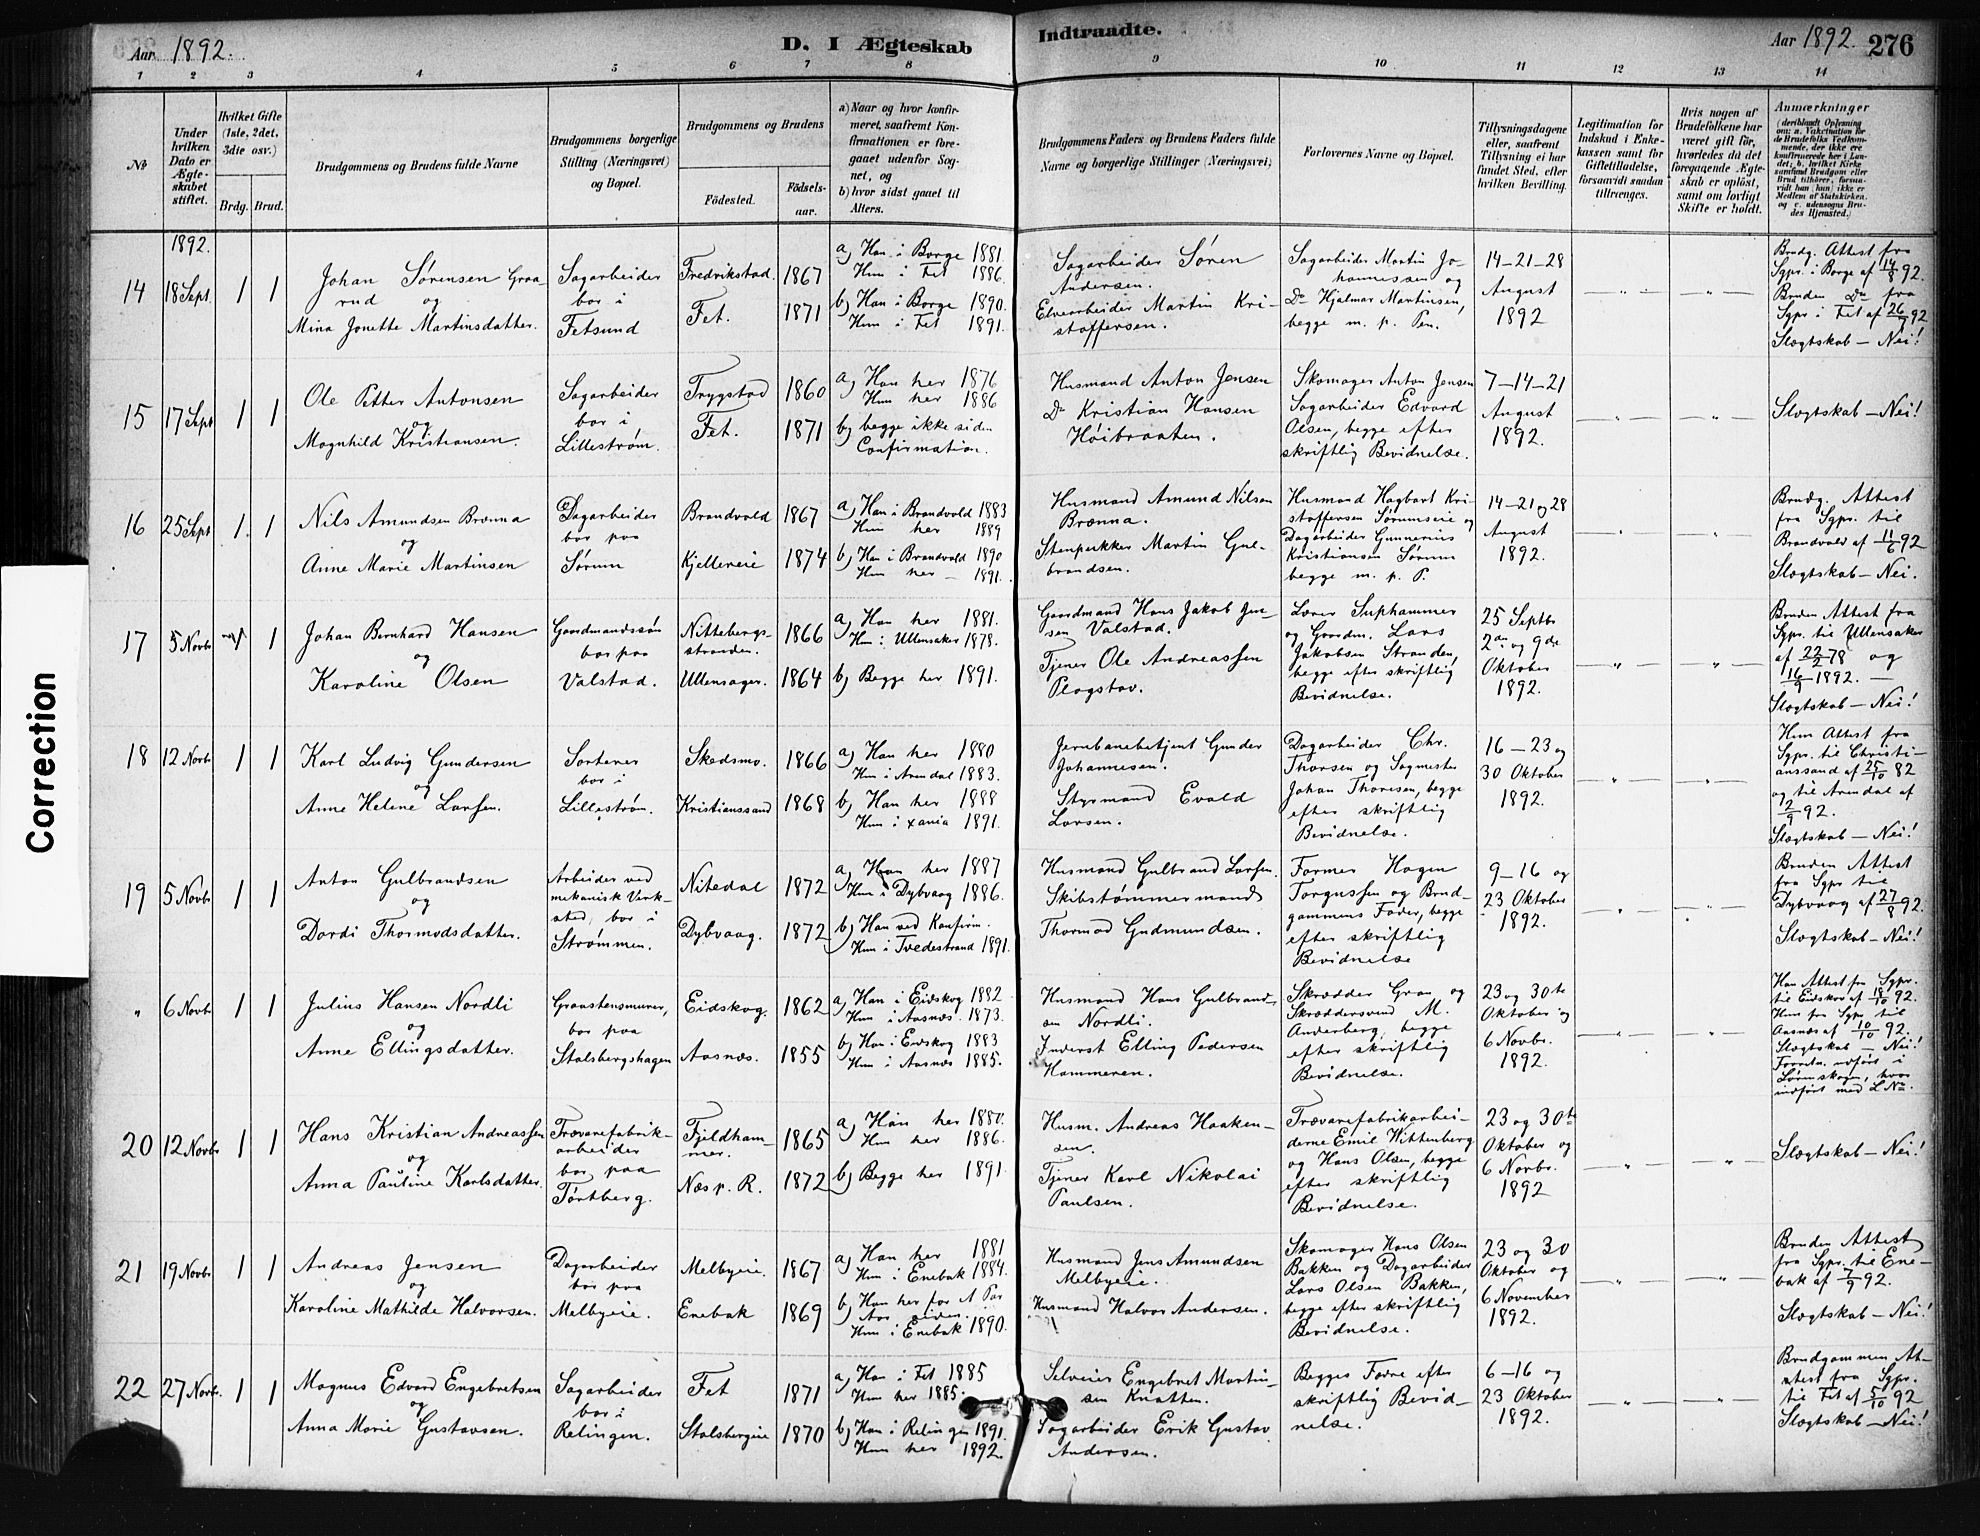 Aar 1892.
D. I Ægteskab
Indtraadte.
Aar 1892. 276
1 2 3 4 5 6 7 8 9 10 11 12 13 14
№
Under hvilken Dato er Ægteskabet stiftet.
Hvilket Gifte (1ste, 2det, 3die osv.)
Brdg. Brud.
Brudgommens og Brudens fulde Navne
Brudgommens borgerlige Stilling (Næringsvei) og Bopæl.
Brudgommens og Brudens
Fødested. Fødselsaar.
a) Naar og hvor konfirmeret, saafremt Konfirmationen er foregaaet udenfor Sognet, og
b) hvor sidst gaaet til Alters.
Brudgommens Faders og Brudens Faders fulde Navne og borgerlige Stillinger (Næringsvei)
Forlovernes Navne og Bopæl.
Tillysningsdagene eller, saafremt Tillysning ei har fundet Sted, efter hvilken Bevilling.
Legitimation for Indskud i Enkekassen samt for Giftetilladelse, forsaavidt saadan tiltrænges.
Hvis nogen af Brudefolkene har været gift før, hvorledes da det foregaaende Ægteskab er opløst, samt om lovligt Skifte er holdt.
Anmærkninger (deriblandt Oplysning om: a. Vakcination for de Brudefolks Vedkommende, der ikke ere konfirmerede her i Landet; b. hvilket Kirkesamfund Brudgom eller Brud tilhører, forsaavidt han (hun) ikke er Medlem af Statskirken, og c. udensogns Brudes Hjemsted.)
1892.
14 18 Sept. 1 1
Johan Sørensen Graarud
og
Mina Jonette Martinsdatter.
Sagarbeider
bor i
Fetsund
Fredrikstad. 1867
Fet. 1871
a) Han i Borge 1881.
Hun i Fet 1886.
b) Han i Borge 1890.
Hun i Fet 1891.
Sagarbeider Søren
Andersen.
Elvearbeider Martin Kri-
stoffersen.
Sagarbeider Martin Jo-
hannessen og
Do Hjalmar Martinsen,
begge m. p. Pen.
14–21–28
August
1892
Brudg. Attest fra
Sgpr. i Borge af 14/8 92.
Bruden Do fra
Sgpr. i Fet af 26/7 92
Slægtskab – Nei!
15 17 Sept 1 1
Ole Petter Antonsen
og
Magnhild Kristiansen.
Sagarbeider
bor i
Lillestrøm.
Trygstad 1860
Fet. 1871
a) Han her 1876
Hun her 1886
b) begge ikke siden
Confirmation.
Husmand Anton Jensen
Do Kristian Hansen
Høibraaten.
Skomager Anton Jensen
Sagarbeider Edvard
Olsen, begge efter
skriftlig Bevidnelse.
7–14–21
August
1892.
Slægtskab – Nei!
16 25 Sept 1. 1
Nils Amundsen Brænna
og
Anne Marie Martinsen
Dagarbeider
bor paa
Sørum
Brandvold 1867
Kjellereie 1874
a) Han i Brandvold 1883
Hun her 1889
b) Han i Brandvold 1890
Hun her – 1891.
Husmand Amund Nilsen
Brænna.
Stenpukker Martin Gul-
brandsen.
Husmand Hagbart Kri-
stoffersen Sørumseie og
Dagarbeider Gunnerius
Kristiansen Sørum
begge m. p. P.
14–21 og 28
August
1892.
Brudg. Attest
fra Sgpr. til
Brandvold af 11/6 92
Slægtskab – Nei.
17 5 Novbr 1
Johan Bernhard Hansen
og
Karoline Olsen
Gaardmandssøn
bor paa
Valstad.
Nittebergs-
stranden. 1866
Ullensager. 1864
a) Han her 1881.
Hun i Ullensaker 1878.
b) Begge her 1891.
Gaardmand Hans Jakob Jen-
sen Valstad.
Tjener Ole Andreassen
Plogstav.
Lærer Suphammer
og Gaardm. Lars
Jakobsen Stranden,
begge efter skriftlig
Bevidnelse.
25 Septbr
2den og 9de
Oktober
1892.
Bruden Attest fra
Sgpr. til Ullensaker
af 22/2 78 og
16/9 1892. –
Slægtskab – Nei!
18 12 Novbr. 1 1
Karl Ludvig Gundersen
og
Anne Helene Larsen.
Sorterer
bor i
Lillestrøm.
Skedsmo. 1866
Kristianssand 1868
a) Han her 1880
Hun i Arendal 1883.
b) Han her 1888
Hun i Xania 1891.
Jernbanebetjent Gunder
Johannesen.
Styrmand Evald
Larsen.
Dagarbeider Chr.
Thorsen og Sagmester
Johan Thoresen, begge
efter skriftlig
Bevidnelse.
16–23 og
30 Oktober
1892.
Hun Attest fra
Sgpr. til Christi-
anssand af 25/10 82
og til Arendal af
2/9 92.
Slægtskab – Nei!
19 5 Novbr. 1 1
Anton Gulbrandsen
og
Dordi Thormodsdatter.
Arbeider ved
mekanisk Værk-
sted, bor i
Strømmen.
Nitedal 1872
Dybvaag. 1872
a) Han her 1887
Hun i Dybvaag 1886.
b) Han ved Konfirm.
Hun i Tvedestrand 1891.
Husmand Gulbrand Larsen.
Skibstømmermand
Thormod Gudmundsen.
Former Hagen
Torgussen og Brud-
gommens Fader, begge
efter skriftlig
Bevidnelse
9–16 og
23 Oktober
1892.
Bruden Attest
fra Sgpr til
Dybvaag af 27/8 92.
Slægtskab – Nei!
" 6 Novbr. 1 1
Julius Hansen Nordli
og
Anne Ellingsdatter.
Graastensmurer,
bor paa
Stalsbergshagen
Eidskog. 1862
Aasnæs. 1855
a) Han i Eidskog 1882
Hun i Aasnæs. 1873.
b) Han i Eidskog 1883
Hun i Aasnæs 1885.
Husmand Hans Gulbrand-
sen Nordli.
Inderst Elling Pedersen
Hammeren.
Skrædder Gran og
Skræddersvend M.
Anderberg, begge
efter skriftlig
Bevidnelse.
23 og 30te
Oktober og
6 Novbr.
1892.
Han Attest fra Sgpr.
til Eidskog af 18/10 92.
Hun fra Sgpr til
Aasnæs af 10/10 92.
Slægtskab – Nei!
Forretn. udført i
Lørenskogen, hvor
indført med L No.
20 12 Novbr 1 1
Hans Kristian Andreassen
og
Anna Pauline Karlsdatter.
Trævarefabrik-
arbeider
bor paa
Tørtberg.
Fjeldham-
mer. 1865
Næs p. R. 1872
a) Han her 1880.
Hun her 1886.
b) Begge her 1891
Husm. Andreas Haaken-
sen.
Tjener Karl Nikolai
Paulsen.
Trævarefabrikarbei-
derne Emil Wittenberg
og Hans Olsen, begge
efter skriftlig
Bevidnelse.
23 og 30te
Oktober og
6 Novbr.
1892
Slægtskab – Nei!
21 19 Novbr 1 1
Andreas Jensen
og
Karoline Mathilde Halvorsen.
Dagarbeider
bor paa
Melbyeie.
Melbyeie. 1867
Enebak 1869
a) Han her 1881
Hun i Enebak 1884.
b) Han her for
Aar siden.
Hun i Enebak 1890.
Husmand Jens Amundsen
Melbyeie.
Husmand Halvor Andersen.
Skomager Hans Olsen
Bakken og Dagarbeider
Lars Olsen Bakken,
begge efter skriftlig
Bevidnelse.
23 og 30
Oktober og
6 November
1892.
Bruden Attest
fra Sgpr. til Ene-
bak af 7/9 92.
Slægtskab – Nei!
22 27 Novb. 1 1
Magnus Edvard Engebretsen
og
Anna Marie Gustavsen.
Sagarbeider
bor i
Relingen.
Fet 1871
Stalsbergeie 1870
a) Han i Fet 1885
Hun her 1885.
b) Han i Relingen 1891.
Hun her 1892.
Selveier Engebret Martin-
sen Knatten.
Sagarbeider Erik Gustav
Andersen.
Begges Fædre efter
skriftlig Bevid-
nelse.
6–16 og
23 Oktober
1892.
Brudgommen At-
test fra Sgpr.
til Fet af 5/10 92
Slægtskab – Nei!
Correction